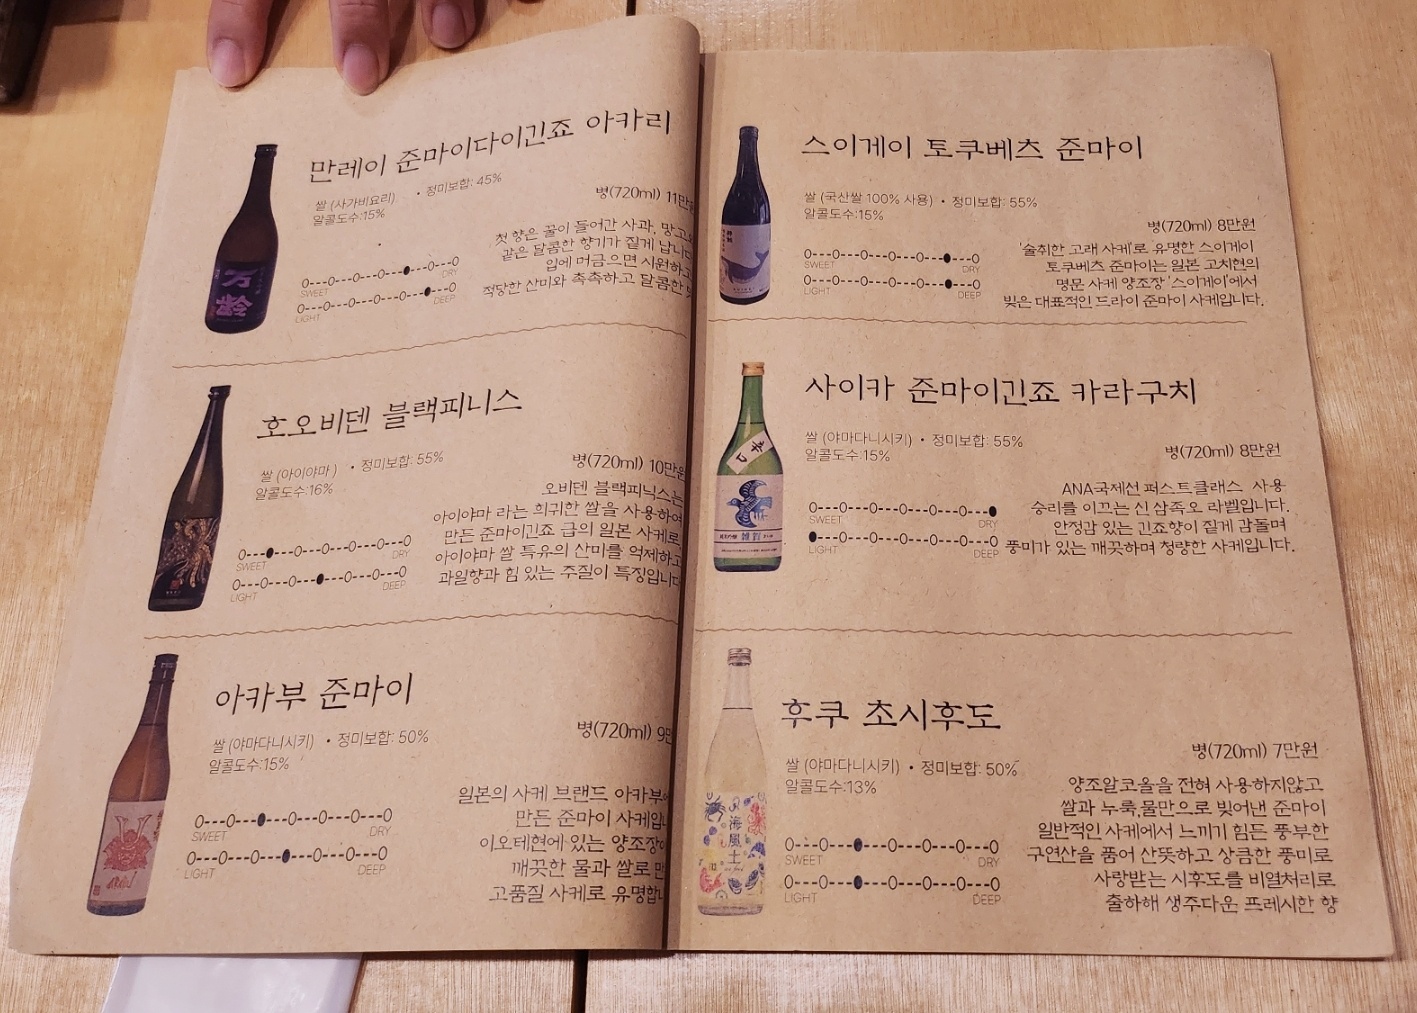 만레이 준마이다이긴죠 아카리
쌀 (사가비요리) • 정미보합: 45%
알콜도수:15%
병(720ml) 11만
첫 향은 꿀이 들어간 사과, 망고와
같은 달콤한 향기가 짙게 납니다
입에 머금으면 시원하고
적당한 산미와 촉촉하고 달콤한
SWEET DRY
LIGHT DEEP
万齢
호오비덴 블랙피니스
쌀 (아이야마 ) • 정미보합: 55%
알콜도수:16%
병(720ml) 10만원
오비덴 블랙피닉스는
아이야마 라는 희귀한 쌀을 사용하여
만든 준마이긴죠 급의 일본 사케로,
아이야마 쌀 특유의 산미를 억제하고
과일향과 힘 있는 주질이 특징입니다
SWEET DRY
LIGHT DEEP
아카부 준마이
쌀 (야마다니시키) • 정미보합: 50%
알콜도수:15%
병(720ml) 9만
일본의 사케 브랜드 아카부
만든 준마이 사케입니
이오테현에 있는 양조장
깨끗한 물과 쌀로 만
고품질 사케로 유명합니
SWEET DRY
LIGHT DEEP
스이게이 토쿠베츠 준마이
쌀 (국산쌀 100% 사용) • 정미보합: 55%
알콜도수:15%
병(720ml) 8만원
'술취한 고래 사케'로 유명한 스이게이
토쿠베츠 준마이는 일본 고치현의
명문 사케 양조장 '스이게이'에서
빚은 대표적인 드라이 준마이 사케입니다.
SWEET DRY
LIGHT DEEP
사이카 준마이긴죠 카라구치
쌀 (야마다니시키) • 정미보합: 55%
알콜도수:15%
병(720ml) 8만원
ANA국제선 퍼스트클래스 사용
승리를 이끄는 신 삼족오 라벨입니다.
안정감 있는 긴죠향이 짙게 감돌며
풍미가 있는 깨끗하며 청량한 사케입니다.
SWEET DRY
LIGHT DEEP
辛口
후쿠 초시후도
쌀 (야마다니시키) • 정미보합: 50%
알콜도수:13%
병(720ml) 7만원
양조알코올을 전혀 사용하지않고
쌀과 누룩,물만으로 빚어낸 준마이
일반적인 사케에서 느끼기 힘든 풍부한
구연산을 품어 산뜻하고 상큼한 풍미로
사랑받는 시후도를 비열처리로
출하해 생주다운 프레시한 향
SWEET DRY
LIGHT DEEP
海風土